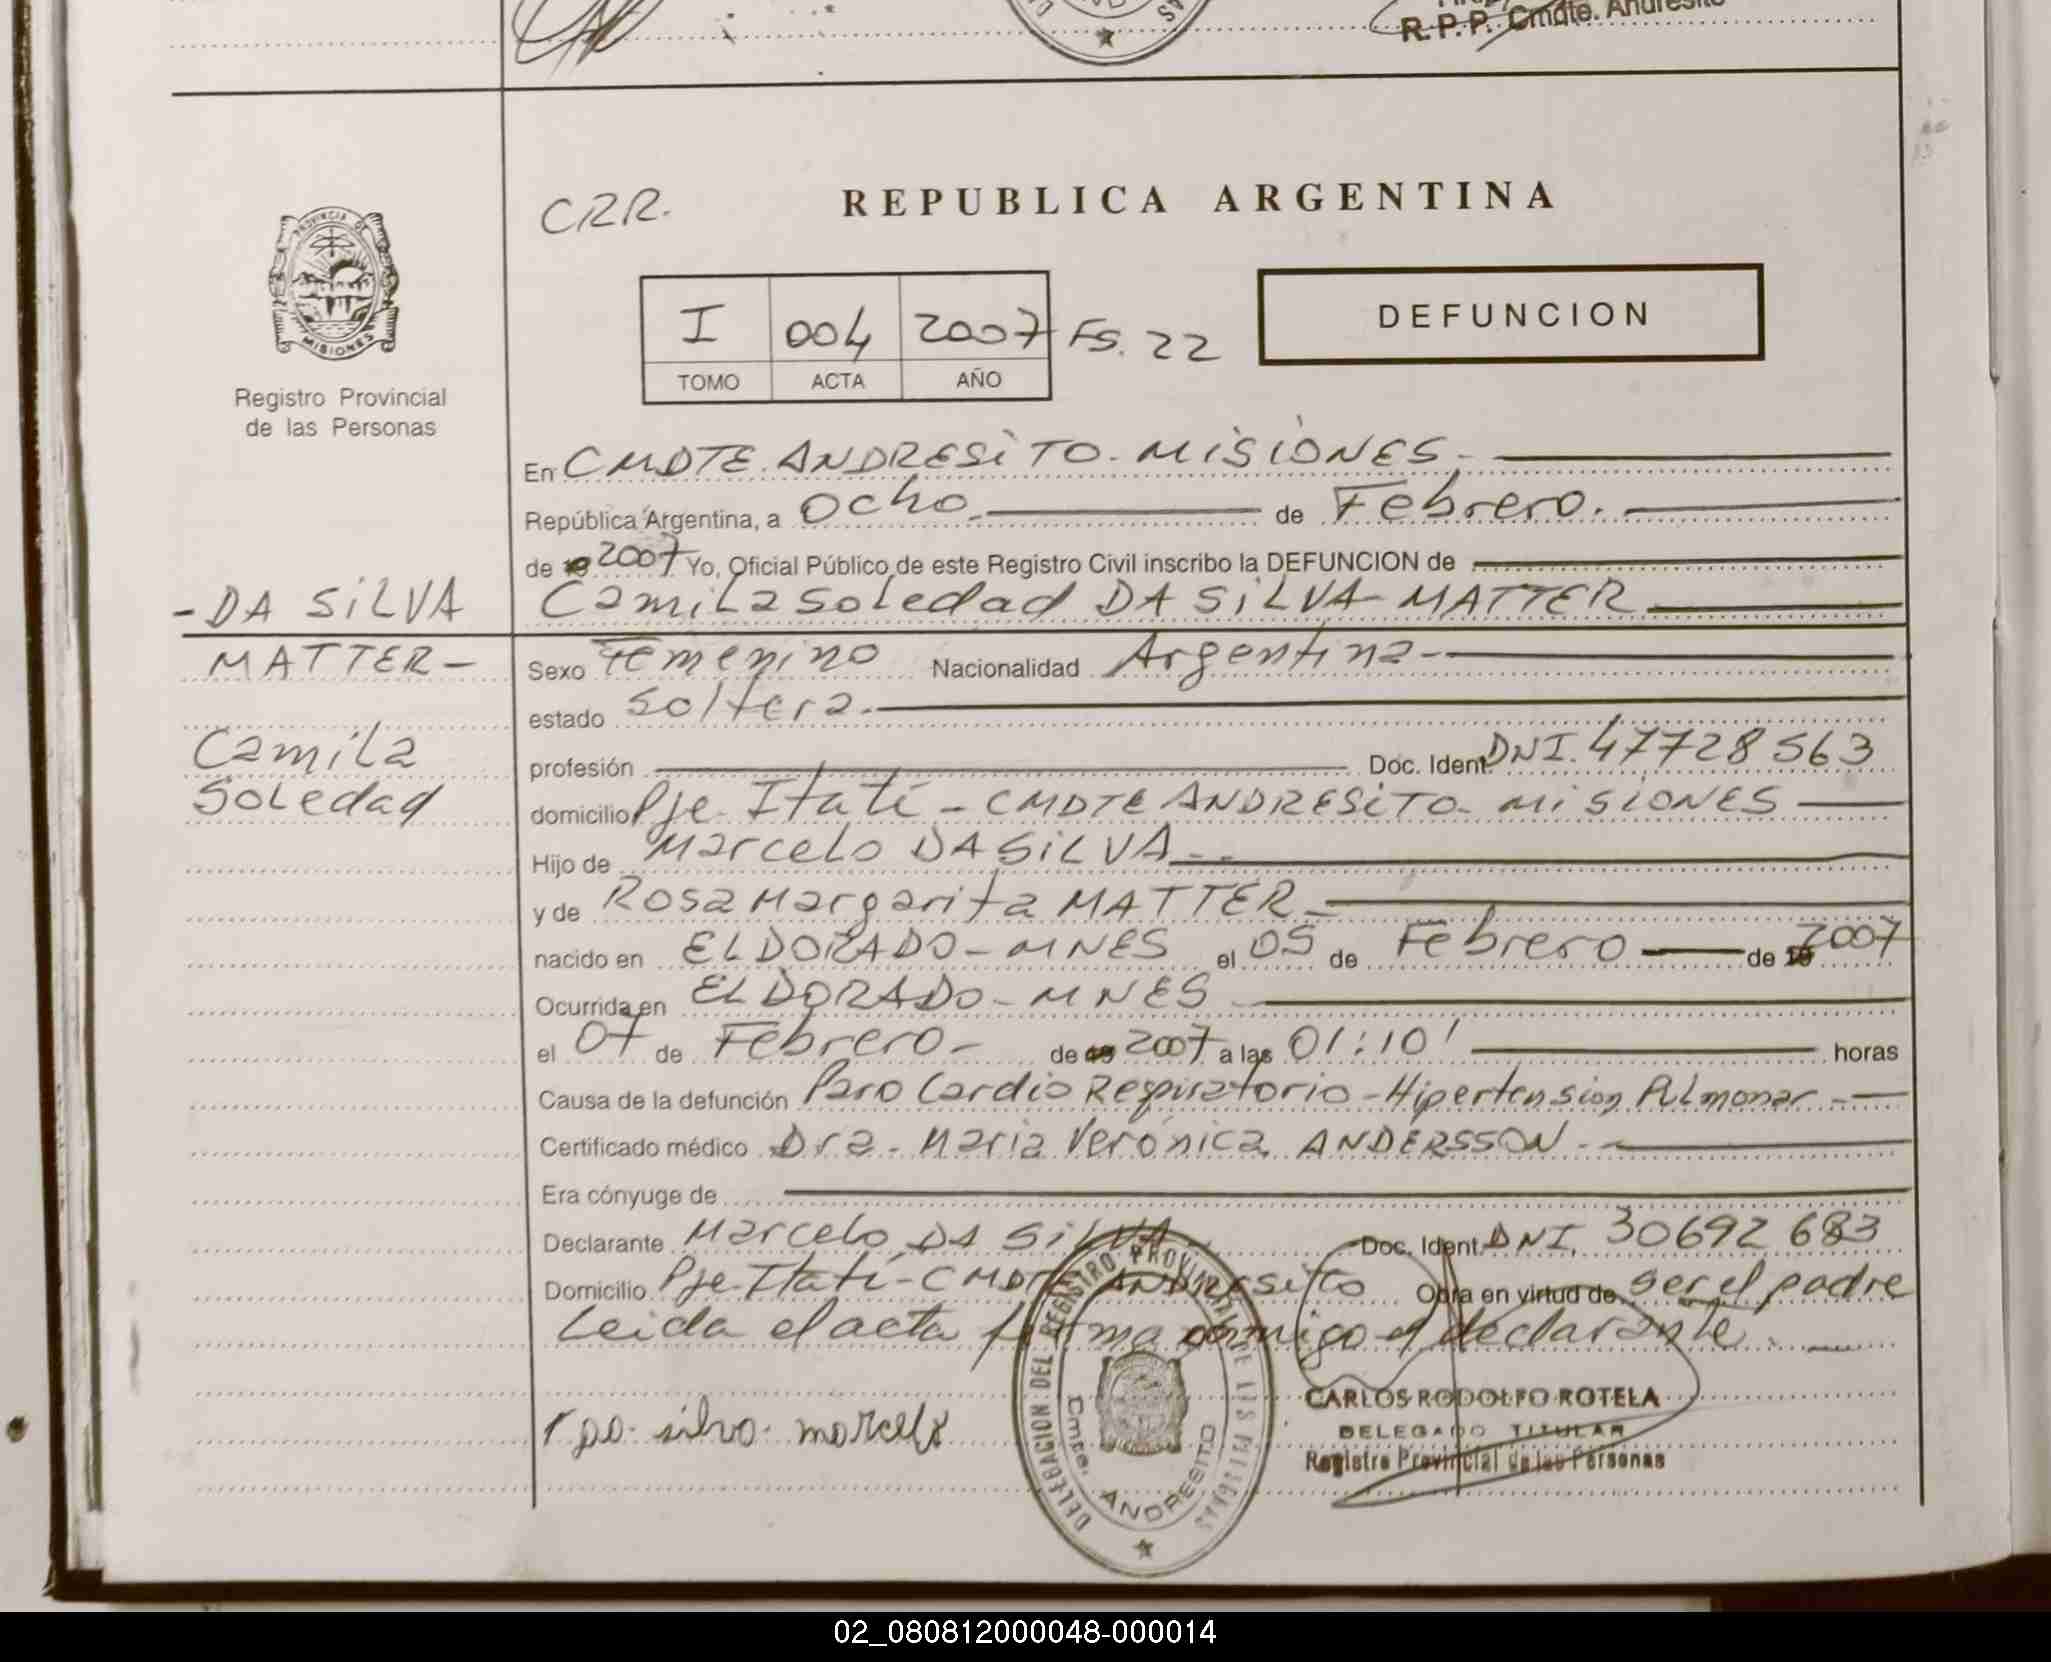 R. P. P. Cmdte. Andresito
PROVINCIA DE
MISIONES
Registro Provincial
de las Personas
CRR.
REPUBLICA ARGENTINA
I 004 2007 Fs. 22
TOMO ACTA AÑO
DEFUNCION
En CMDTE. ANDRESITO - MISIONES -
República Argentina, a Ocho de Febrero.
de 19 2007 Yo, Oficial Público de este Registro Civil inscribo la DEFUNCION de
- DA SILVA
Camila Soledad DA SILVA MATTER
MATTER -
Sexo Femenino Nacionalidad Argentina -
estado Soltera.
Camila
profesión Doc. Ident. DNI. 47728563
Soledad
domicilio Pje. Itatí - CMDTE ANDRESITO - MISIONES
Hijo de Marcelo DA SILVA - -
y de Rosa Margarita MATTER -
nacido en ELDORADO - MNES el 05 de Febrero de 19 2007
Ocurrida en ELDORADO - MNES
el 07 de Febrero - de 19 2007 a las 01:10' horas
Causa de la defunción Paro Cardio Respiratorio - Hipertension Pulmonar -
Certificado médico Dra. Maria Verónica ANDERSSON -
Era cónyuge de
Declarante Marcelo DA SILVA Doc. Ident. DNI 30692683
Domicilio Pje. Itatí - CMDTE ANDRESITO Obra en virtud de ser el padre
Leida el acta firma conmigo el declarante.
DELEGACION DEL REGISTRO PROVINCIAL DE LAS PERSONAS
Cmte. ANDRESITO
CARLOS RODOLFO ROTELA
DELEGADO TITULAR
Registro Provincial de las Personas
da silva marcelo
02_080812000048-000014